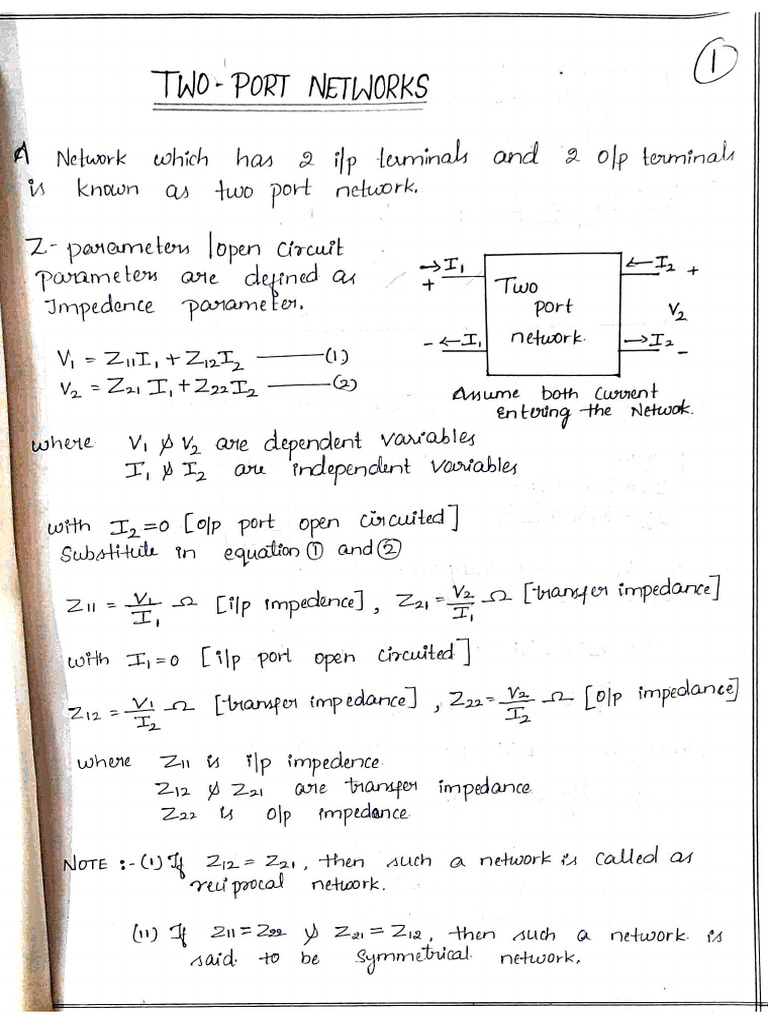 1
TWO-PORT NETWORKS
A Network which has 2 i/p terminals and 2 o/p terminals
is known as two port network.
Z-parameters | open circuit
parameters are defined as
Impedence parameter.
→I₁
+
- ←I₁
Two
port
network.
←I₂ +
V₂
→I₂ -
Assume both current
entering the Netwok.
V₁ = Z₁₁I₁ + Z₁₂I₂ ——— (1)
V₂ = Z₂₁ I₁ + Z₂₂I₂ ——— (2)
where V₁ & V₂ are dependent variables
I₁ & I₂ are independent variables
with I₂=0 [o/p port open circuited]
Substitute in equation ① and ②
Z₁₁ = V₁/I₁ Ω [i/p impedence], Z₂₁ = V₂/I₁ Ω [transfer impedance]
with I₁=0 [i/p port open circuited]
Z₁₂ = V₁/I₂ Ω [transfer impedance], Z₂₂ = V₂/I₂ Ω [o/p impedance]
where Z₁₁ is i/p impedence
Z₁₂ & Z₂₁ are transfer impedance
Z₂₂ is o/p impedance
NOTE :- (i) If Z₁₂ = Z₂₁, then such a network is called as
reciprocal network.
(ii) If Z₁₁ = Z₂₂ & Z₂₁ = Z₁₂, then such a network is
said to be symmetrical network.